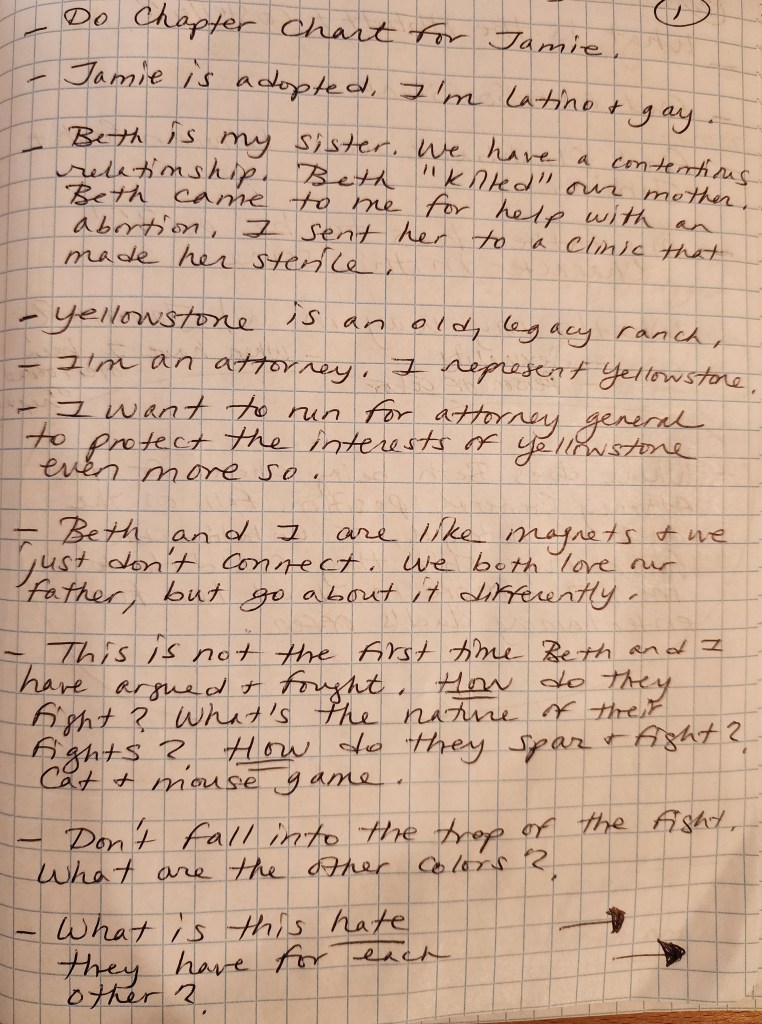 ①
- Do Chapter Chart for Jamie.
- Jamie is adopted. I'm Latino + gay.
- Beth is my sister. We have a contentious
relationship. Beth "killed" our mother.
Beth came to me for help with an
abortion. I sent her to a clinic that
made her sterile.
- Yellowstone is an old, legacy ranch.
- I'm an attorney. I represent Yellowstone.
- I want to run for attorney general
to protect the interests of Yellowstone
even more so.
- Beth and I are like magnets + we
just don't connect. We both love our
father, but go about it differently.
- This is not the first time Beth and I
have argued + fought. How do they
fight? What's the nature of their
fights? How do they spar + fight?
Cat + mouse game.
- Don't fall into the trap of the fight.
What are the other colors?
- What is this hate →
they have for each →
other?